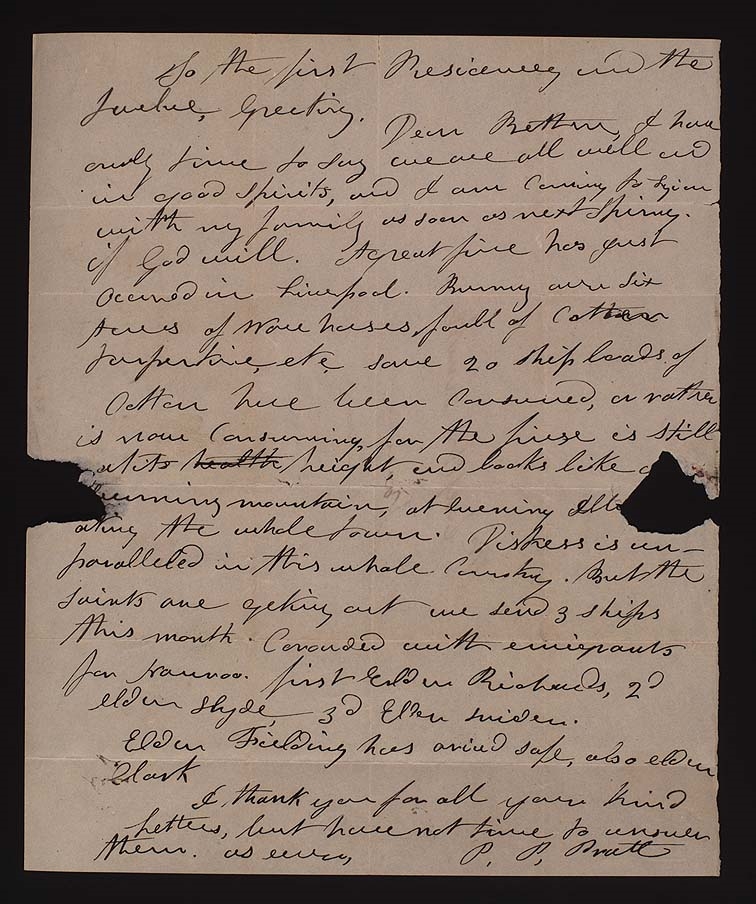 To the first Presidency and the
Twelve, Greeting.
Dear Brethren, I have
only time to say we are all well and
in good spirits, and I am Coming to Zion
with my family as soon as next Spring.
if God will. A great fire has just
occured in Liverpool. Burning over Six
Acres of ware houses, full of Cotten
turpentine, etc, some 20 ship loads of
Cotton have been Consumed, or rather
is now Consuming, for the fire is still
at its health height, and looks like a
burning mountain, at evening
ating the whole town. Distress is un-
paralleled in this whole Country. But the
saints are geting out we send 3 ships
this month. Crouded with emigrants
for Nauvoo. first Elder Richards, 2d
elder Hyde, 3d Elder Snider.
Elder Fielding has arived safe, also elder
Clark
I thank you for all your kind
Letters, but have not time to answer
them. as ever,
P. P. Pratt